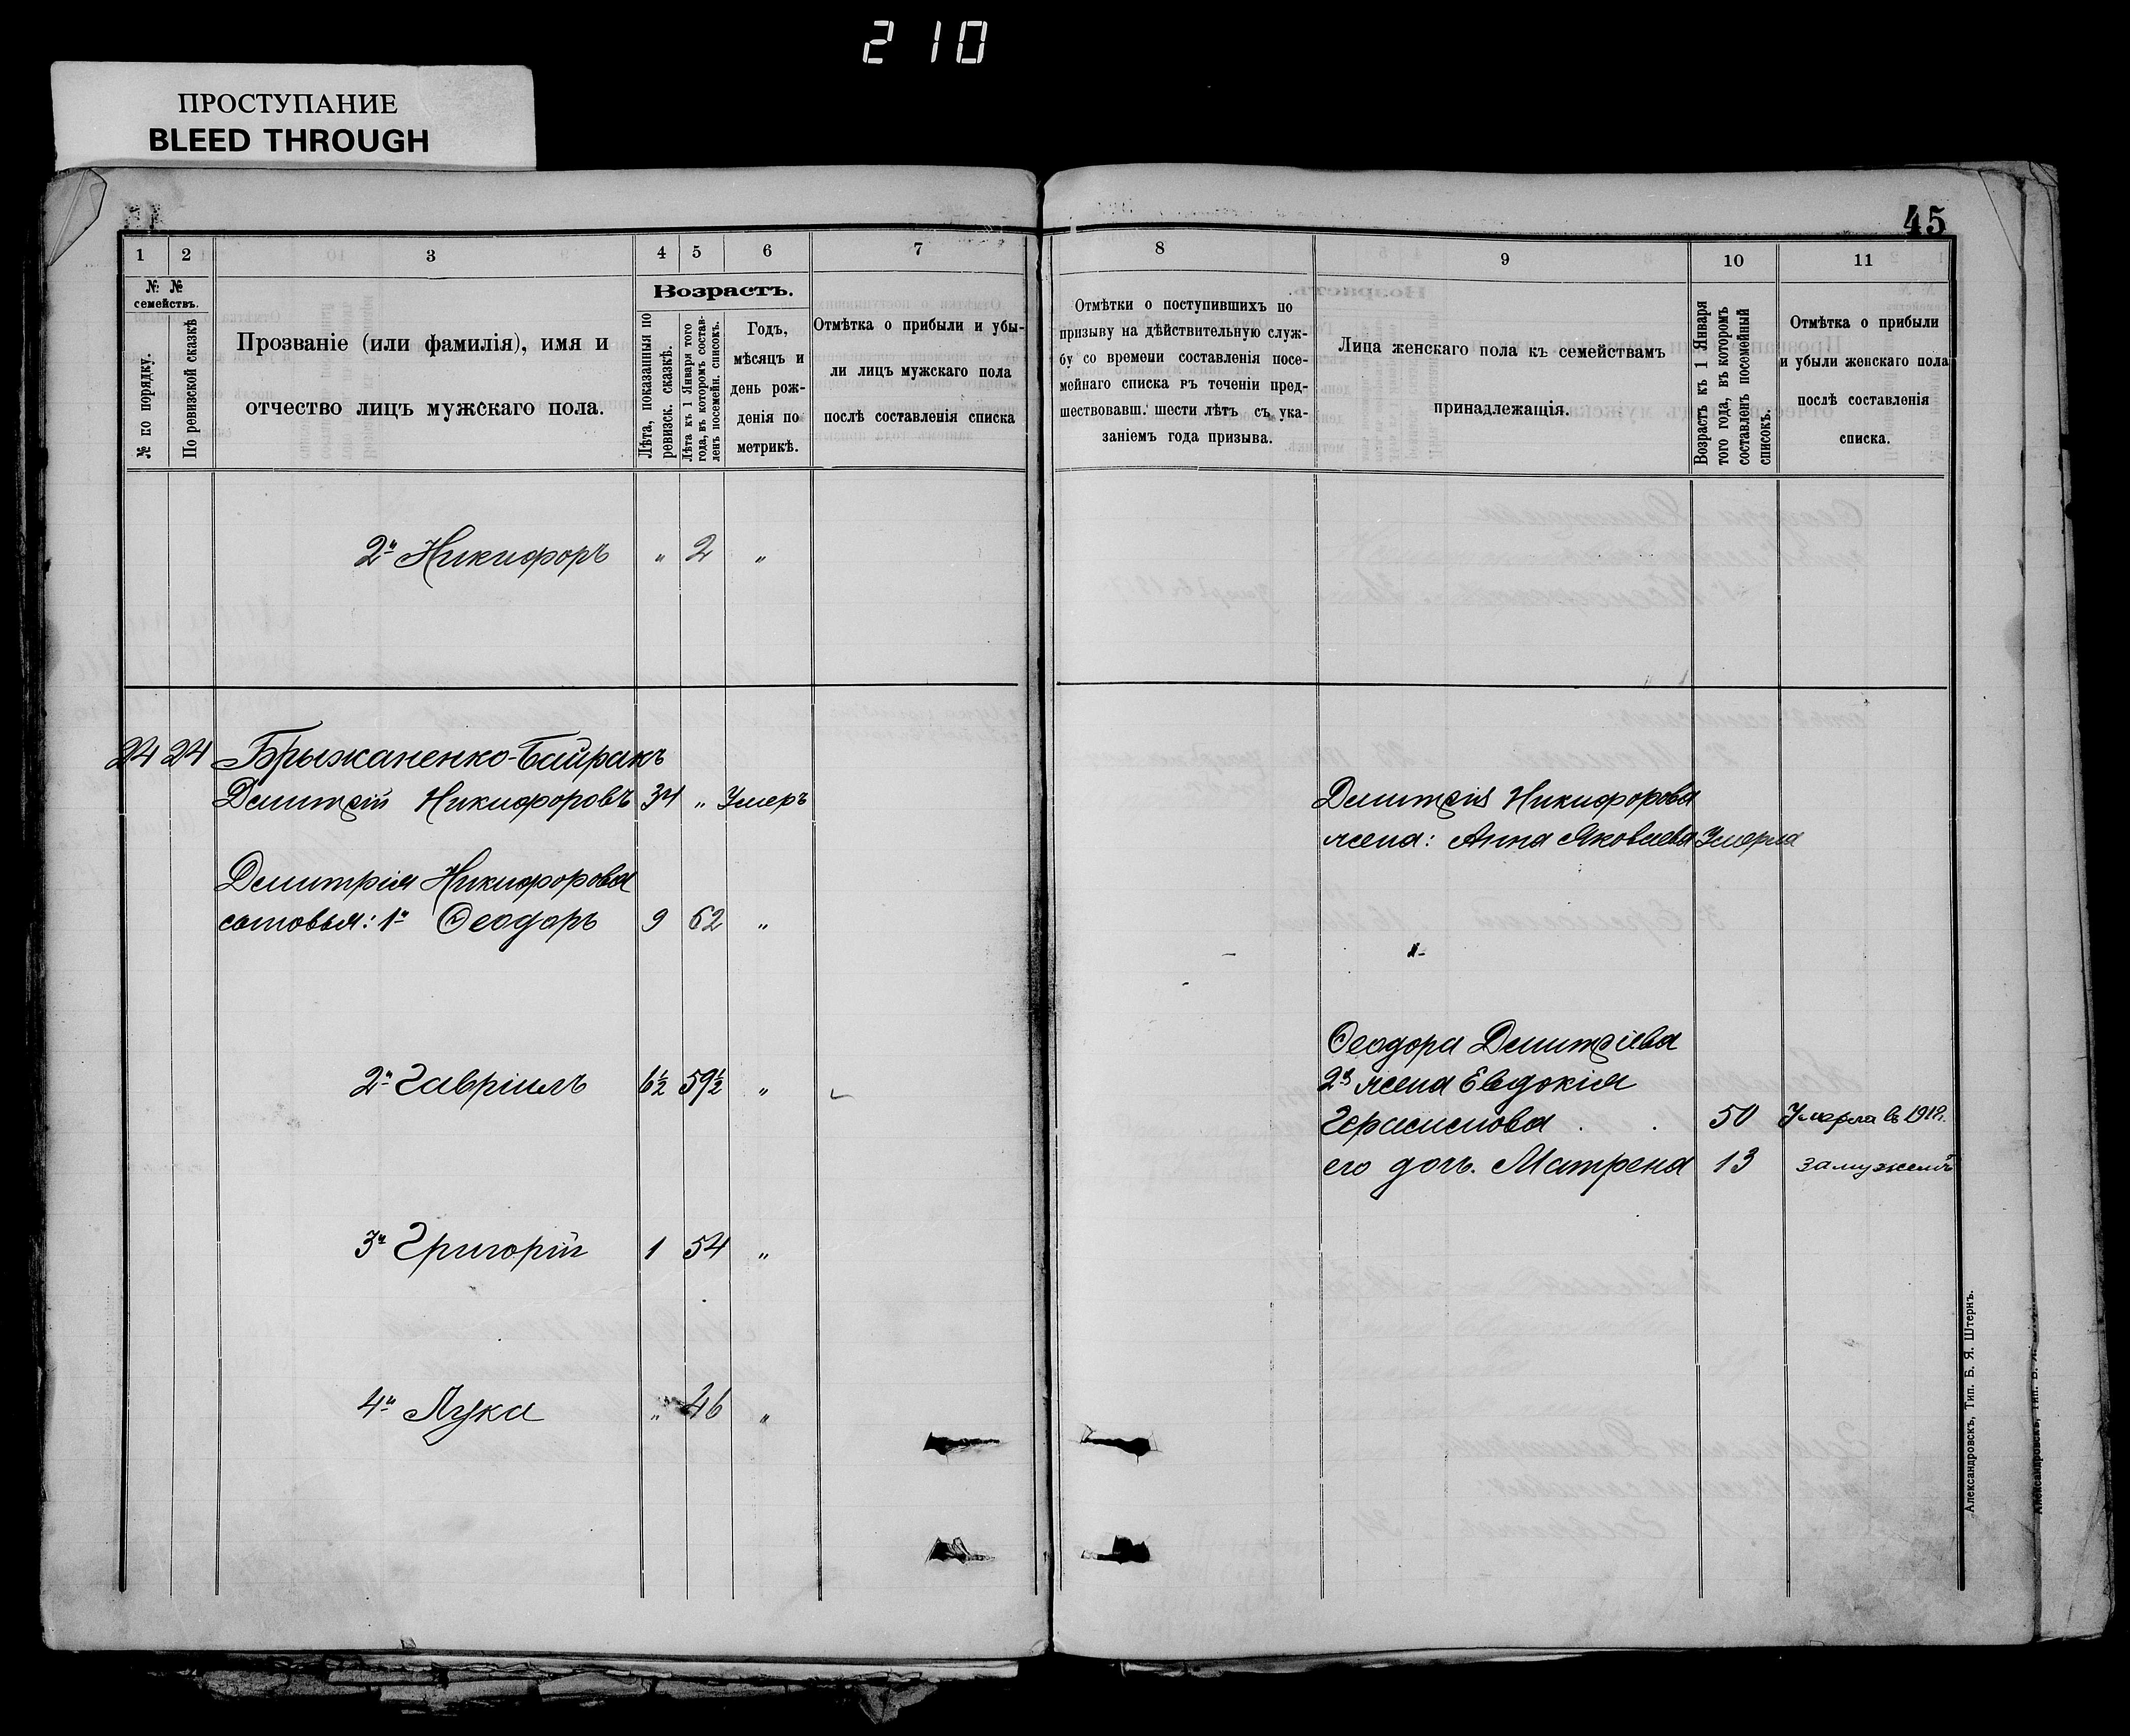 210
ПРОСТУПАНИЕ
BLEED THROUGH
45
1 2 3 4 5 6 7 8 9 10 11
№ №
семействъ.
№ по порядку.
По ревизской сказкѣ
Прозваніе (или фамилія), имя и
отчество лицъ мужскаго пола.
Возрастъ.
Лѣта, показанныя по
ревизск. сказкѣ.
Лѣта къ 1 Января того
года, въ которомъ состав-
ленъ посемейн. списокъ.
Годъ,
мѣсяцъ и
день рож-
денія по
метрикѣ.
Отмѣтка о прибыли и убы-
ли лицъ мужскаго пола
послѣ составленія списка
Отмѣтки о поступившихъ по
призыву на дѣйствительную служ-
бу со времени составленія посе-
мейнаго списка въ теченіи пред-
шествовавш. шести лѣтъ съ ука-
заніемъ года призыва.
Лица женскаго пола къ семействамъ
принадлежащія.
Возрастъ къ 1 Января
того года, въ которомъ
составленъ посемейный
списокъ.
Отмѣтка о прибыли
и убыли женскаго пола
послѣ составленія
списка.
2й Никифоръ " 2 "
24 24 Брыжаненко-Байракъ
Дмитрій Никифоровъ 34 " Умеръ
Дмитрія Никифорова
сыновья: 1й Ѳеодоръ 9 62 "
2й Гавріилъ 6½ 59½ "
3й Григорій 1 54 "
4й Лука " 46 "
Дмитрія Никифорова
жена: Анна Яковлева Умерла
Ѳеодора Дмитріева
2я жена Евдокія
Герасимова . . 50 Умерла въ 1912.
его дочь. Матрена 13 замужемъ
Александровскъ, Тип. Б. Я. Штернъ.